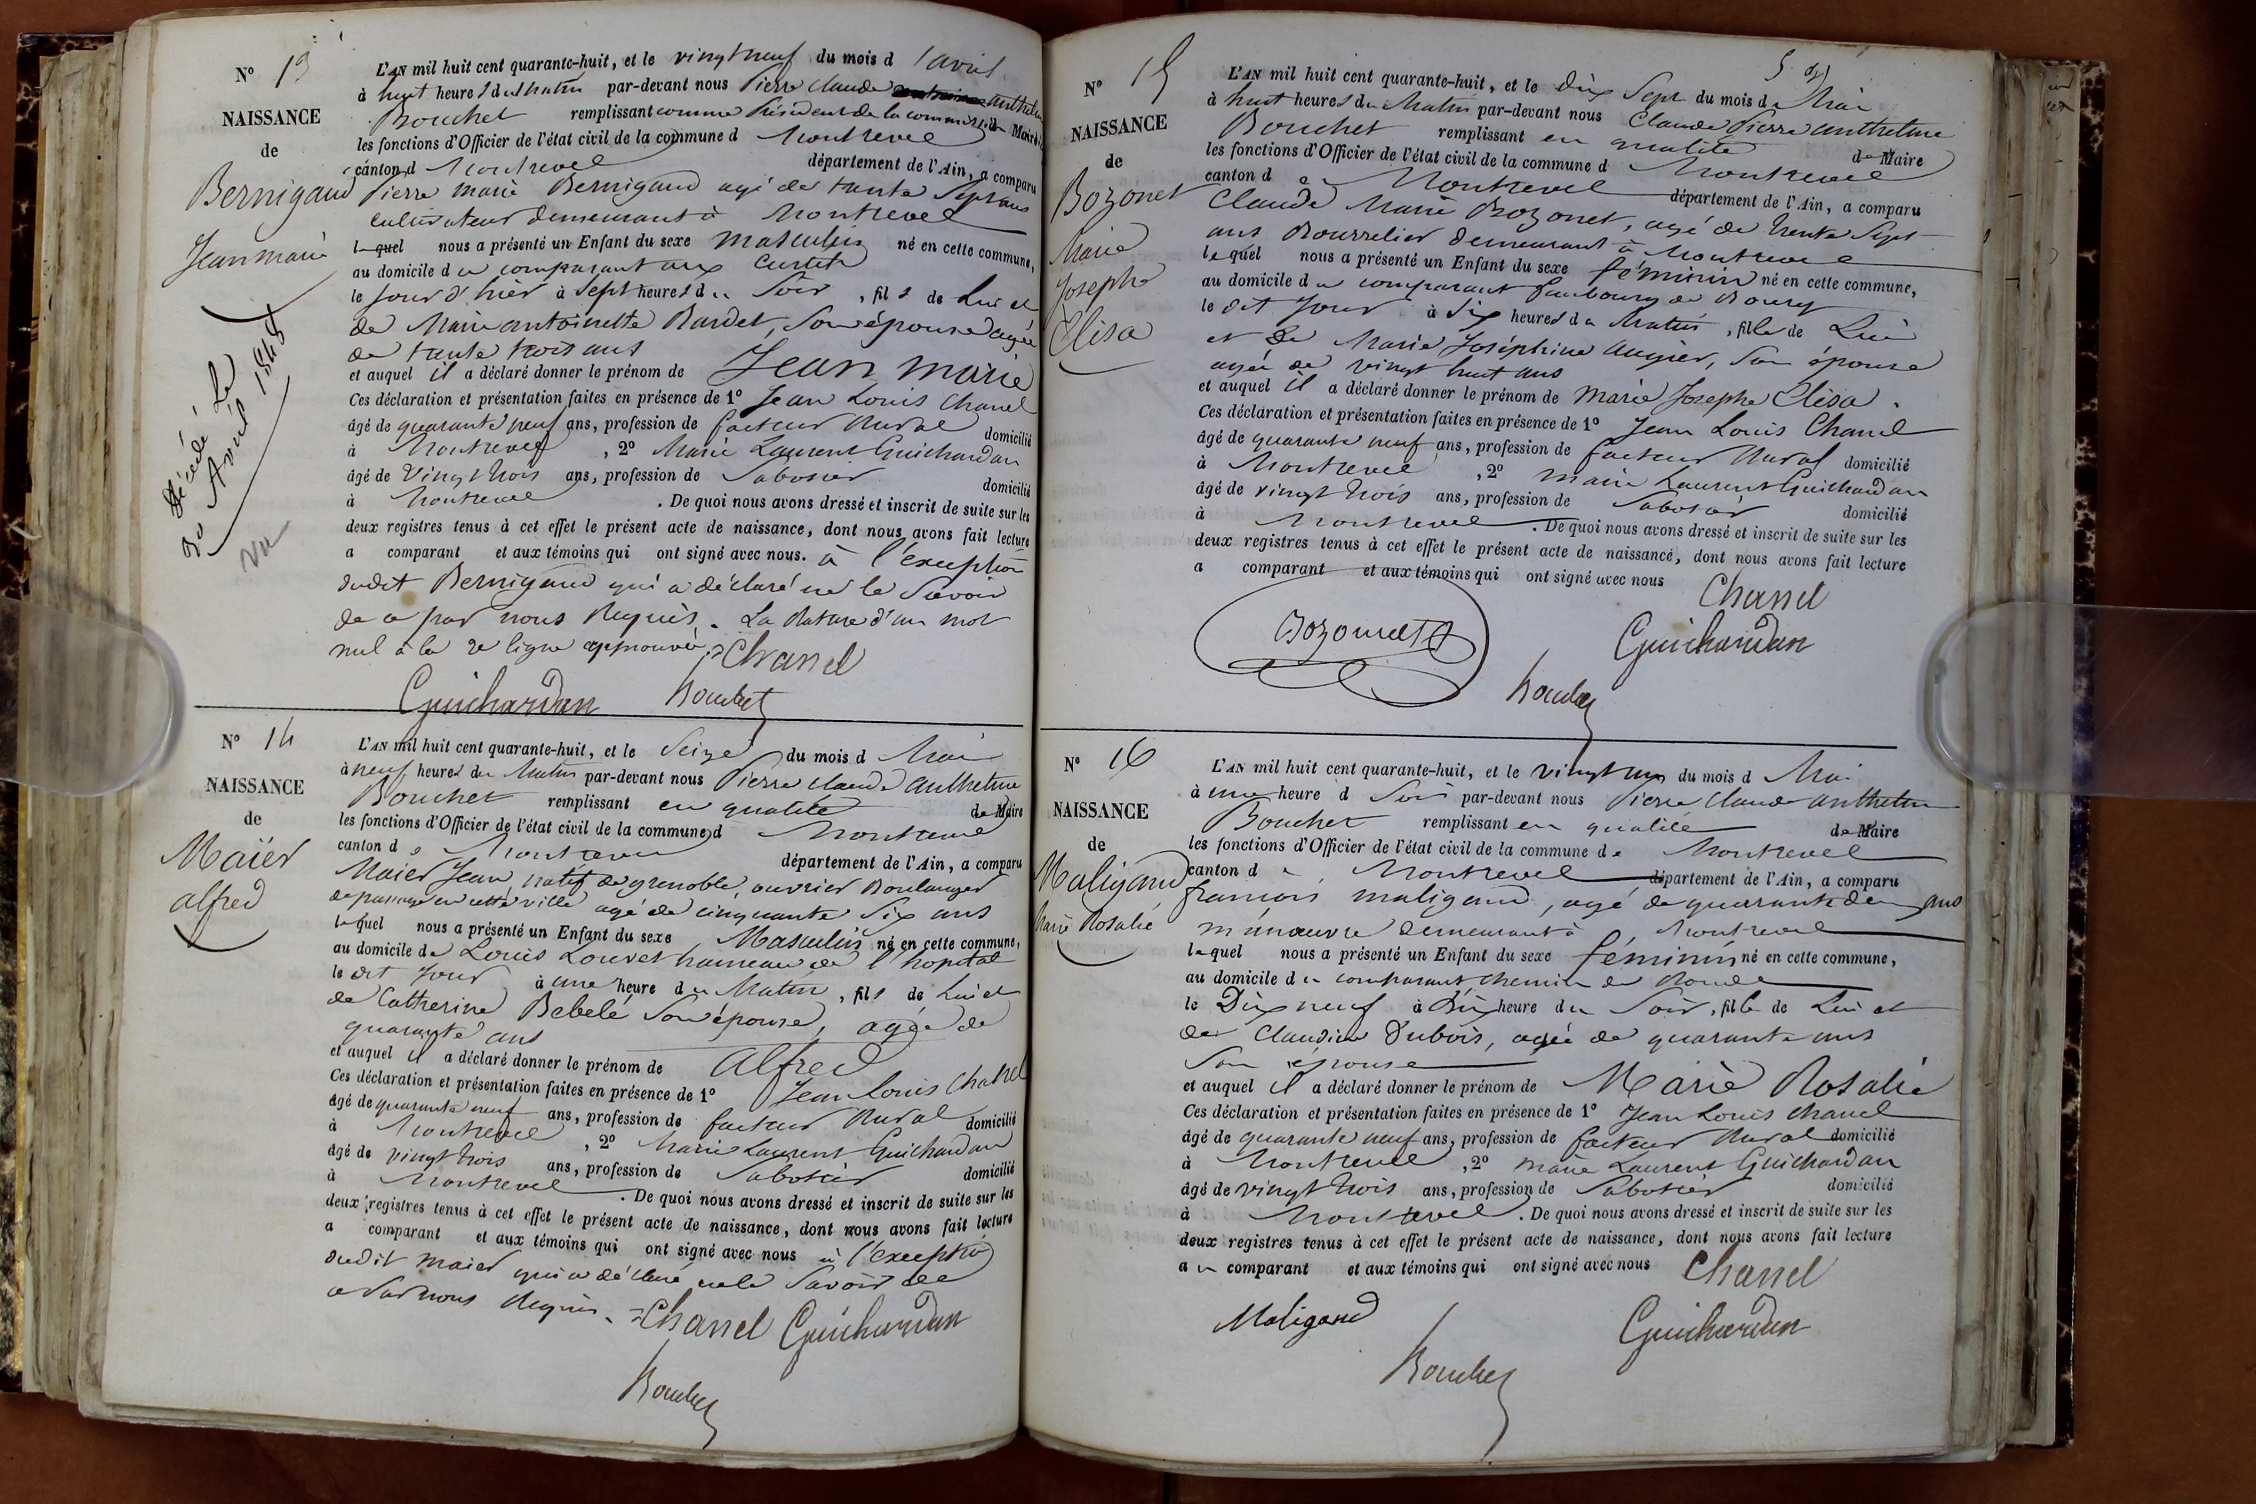 N° 13
NAISSANCE
de
Bernigaud
Jean marie
décédé Le
30 Avril 1848
vu
L'AN mil huit cent quarante-huit, et le vingt neuf du mois d'avril
à huit heures du matin par-devant nous Pierre Claude Anthelme
Bouchet remplissant comme Président de la commission de Maire
les fonctions d'Officier de l'état civil de la commune d Montrevel
canton d Montrevel département de l'Ain, a comparu
Pierre marie Bernigaud agé de trente Sept ans
cultivateur demeurant à Montrevel
lequel nous a présenté un Enfant du sexe masculin né en cette commune,
au domicile du comparant aux Curtets
le jour d'hier à Sept heures du Soir, fils de Lui et
de Marie antoinette Bardet, Son épouse agée
de trente trois ans
et auquel il a déclaré donner le prénom de Jean marie
Ces déclaration et présentation faites en présence de 1° Jean Louis Chanel
âgé de quarante neuf ans, profession de facteur Rural domicilié
à Montrevel, 2° Marie Laurent Guichardan
âgé de Vingt trois ans, profession de Sabotier domicilié
à Montrevel. De quoi nous avons dressé et inscrit de suite sur les
deux registres tenus à cet effet le présent acte de naissance, dont nous avons fait lecture
a comparant et aux témoins qui ont signé avec nous. à l'exception
dudit Bernigaud qui a déclaré ne le Savoir
de ce par nous Requis. La Rature d'un mot
nul à la 2e ligne approuvée. Chanel
Guichardan Bouchet
N° 14
NAISSANCE
de
Maïer
alfred
L'AN mil huit cent quarante-huit, et le Seize du mois d Mai
à neuf heures du Matin par-devant nous Pierre Claude Anthelme
Bouchet remplissant en qualité de Maire
les fonctions d'Officier de l'état civil de la commune d Montrevel
canton de Montrevel département de l'Ain, a comparu
Maier Jean natif de grenoble, ouvrier Boulanger
de passage en cette ville agé de cinquante Six ans
lequel nous a présenté un Enfant du sexe Masculin né en cette commune,
au domicile de Louis Louvet hameau de l'hopital
le dit Jour à une heure du Matin, fils de Lui et
de Catherine Bebelé Son épouse, agée de
quarante ans
et auquel il a déclaré donner le prénom de alfred
Ces déclaration et présentation faites en présence de 1° Jean Louis Chanel
âgé de quarante neuf ans, profession de facteur Rural domicilié
à Montrevel, 2° Marie Laurent Guichardan
âgé de vingt trois ans, profession de Sabotier domicilié
à Montrevel. De quoi nous avons dressé et inscrit de suite sur les
deux registres tenus à cet effet le présent acte de naissance, dont nous avons fait lecture
a comparant et aux témoins qui ont signé avec nous à l'exception
dudit maier qui a déclaré ne le Savoir de
ce Par nous Requis. Chanel Guichardan
Bouchet
5
N° 15
NAISSANCE
de
Bozonet
Marie
Josephe
Elisa
L'AN mil huit cent quarante-huit, et le dix Sept du mois de Mai
à huit heures du Matin par-devant nous Claude Pierre anthelme
Bouchet remplissant en qualité de Maire
les fonctions d'Officier de l'état civil de la commune d Montrevel
canton de Montrevel département de l'Ain, a comparu
Claude Marie Bozonet, agé de trente Sept
ans Bourrelier demeurant à Montrevel
lequel nous a présenté un Enfant du sexe féminin né en cette commune,
au domicile du comparant faubourg de Bourg
le dit Jour à Six heures du Matin, fille de Lui
et de Marie Joséphine augier, Son épouse
agée de vingt huit ans
et auquel il a déclaré donner le prénom de marie Josephe Elisa.
Ces déclaration et présentation faites en présence de 1° Jean Louis Chanel
âgé de quarante neuf ans, profession de facteur Rural domicilié
à Montrevel, 2° marie Laurent Guichardan
âgé de vingt trois ans, profession de Sabotier domicilié
à Montrevel. De quoi nous avons dressé et inscrit de suite sur les
deux registres tenus à cet effet le présent acte de naissance, dont nous avons fait lecture
a comparant et aux témoins qui ont signé avec nous Chanel
Bozonet Guichardan
Bouchet
N° 16
NAISSANCE
de
Maligand
Marie Rosalie
L'AN mil huit cent quarante-huit, et le vingt un du mois d Mai
à une heure d Soir par-devant nous Pierre Claude anthelme
Bouchet remplissant en qualité de Maire
les fonctions d'Officier de l'état civil de la commune de Montrevel
canton de Montrevel département de l'Ain, a comparu
francois maligand, agé de quarante deux ans
manœuvre demeurant à Montrevel
lequel nous a présenté un Enfant du sexe féminin né en cette commune,
au domicile du comparant chemin de Ronde
le Dix neuf à Dix heure du Soir, fille de Lui et
de Claudine Dubois, agée de quarante ans
Son épouse
et auquel il a déclaré donner le prénom de Marie Rosalie
Ces déclaration et présentation faites en présence de 1° Jean Louis Chanel
âgé de quarante neuf ans, profession de facteur Rural domicilié
à Montrevel, 2° marie Laurent Guichardan
âgé de vingt trois ans, profession de Sabotier domicilié
à Montrevel. De quoi nous avons dressé et inscrit de suite sur les
deux registres tenus à cet effet le présent acte de naissance, dont nous avons fait lecture
au comparant et aux témoins qui ont signé avec nous Chanel
Maligand Guichardan
Bouchet